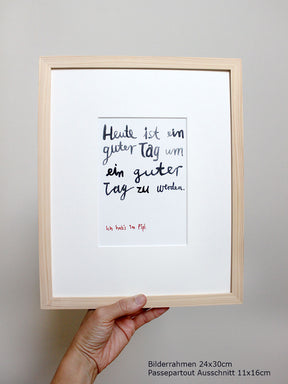 Heute ist ein
guter Tag um
ein guter
Tag zu werden.
Ich hab's im Pipi
Bilderrahmen 24x30cm
Passepartout Ausschnitt 11x16cm